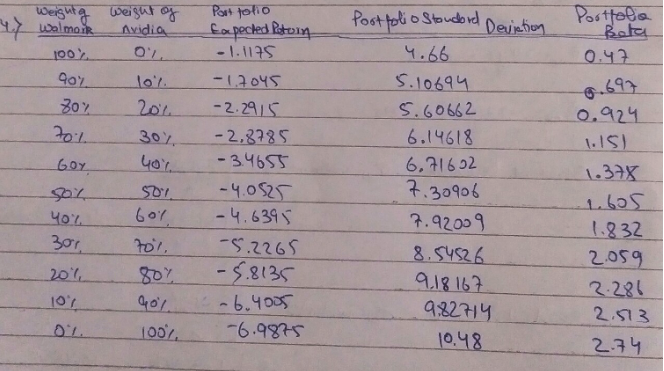 4.) Weight of Walmart Weight of nvidia Portfolio Expected Return Portfolio Standard Deviation Portfolio Beta
100% 0% -1.1175 4.66 0.47
90% 10% -1.7045 5.10694 0.697
80% 20% -2.2915 5.60662 0.924
70% 30% -2.8785 6.14618 1.151
60% 40% -3.4655 6.71602 1.378
50% 50% -4.0525 7.30906 1.605
40% 60% -4.6395 7.92009 1.832
30% 70% -5.2265 8.54526 2.059
20% 80% -5.8135 9.18167 2.286
10% 90% -6.4005 9.82714 2.513
0% 100% -6.9875 10.48 2.74